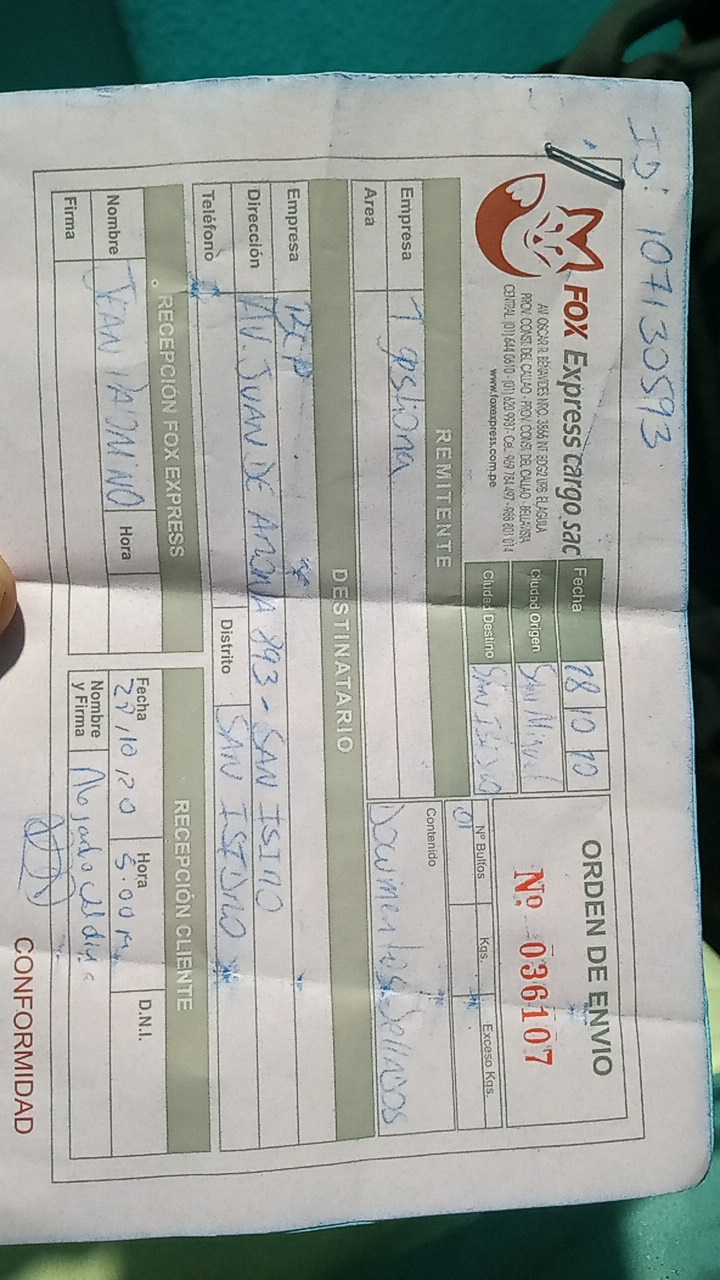 ID: 107130593
FOX Express cargo sac
AV. OSCAR R. BENAVIDES NRO. 3866 INT. BDG2 URB. EL AGUILA
PROV. CONST. DEL CALLAO - PROV. CONST. DEL CALLAO - BELLAVISTA
CENTRAL (01) 644 0610 - (01) 620 9987 - Cel. 969 784 497 - 986 801 014
www.foxexpress.com.pe
Fecha 28 10 20
Ciudad Origen
Ciudad Destino
ORDEN DE ENVIO
Nº 036107
REMITENTE
Empresa Tgestiona
Area
Nº Bultos 01
Kgs.
Exceso Kgs.
Contenido
Documentos Sellados
DESTINATARIO
Empresa BCP
Dirección AV. JUAN DE ARONA 893 - SAN ISIDRO
Teléfono
Distrito SAN ISIDRO
RECEPCIÓN FOX EXPRESS
Nombre JEAN PALOMINO
Hora
Firma
RECEPCIÓN CLIENTE
Fecha 29/10/20
Hora 5:00
D.N.I.
Nombre y Firma
CONFORMIDAD